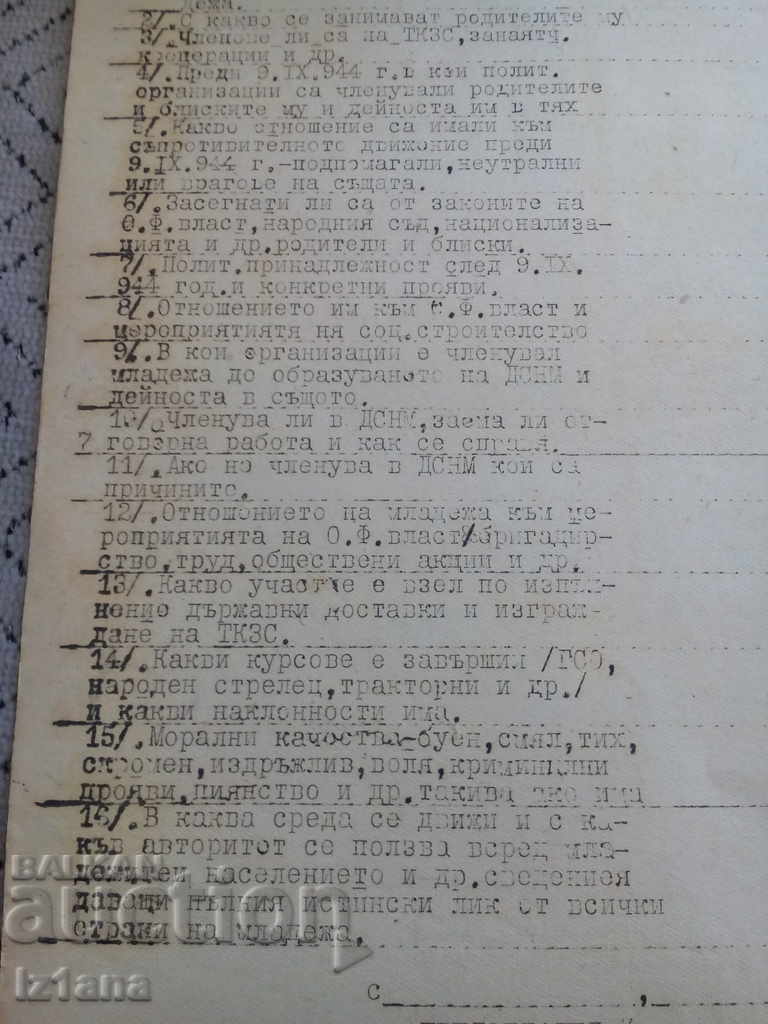 дежа.
2/.С какво се занимават родителите му
3/.Членове ли са на ТКЗС,занаятч.
кооперации и др.
4/.Преди 9.IX.944 г.в кои полит.
организации са членували родителите
и блиските му и дейноста им в тях
5/.Какво отношение са имали към
съпротивителното движение преди
9.IX.944 г.-подпомагали,неутрални
или врагове на същата.
6/.Засегнати ли са от законите на
О.Ф.власт,народния съд,национализа-
цията и др.родители и блиски.
7/.Полит.принадлежност след 9.IX.
944 год.и конкретни прояви.
8/.Отношението им към О.Ф.власт и
мероприятиятя ня соц.строителство
9/.В кои организации е членувал
младежа до образуването на ДСНМ и
дейноста в същото.
10/.Членува ли в ДСНМ,заема ли от-
7 говорна работа и как се справя.
11/.Ако не членува в ДСНМ кои са
причините.
12/.Отношението на младежа към ме-
роприятията на О.Ф.власт/бригадир-
ство,труд,обществени акции и др.
13/.Какво участие е взел по изпъл-
нение държавни доставки и изграж-
дане на ТКЗС.
14/.Какви курсове е завършил /ГСО,
народен стрелец,тракторни и др./
и какви наклонности има.
15/.Морални качества-буен,смял,тих,
скромен,издръжлив,воля,криминални
прояви,пиянство и др.такива ако има
16/.В каква среда се движи и с ка-
къв авторитет се ползва всред мла-
дежитеи населението и др.сведениея
даващи пълния истински лик от всички
страни на младежа.
с ,
BALKAN
auction
Iz1ana